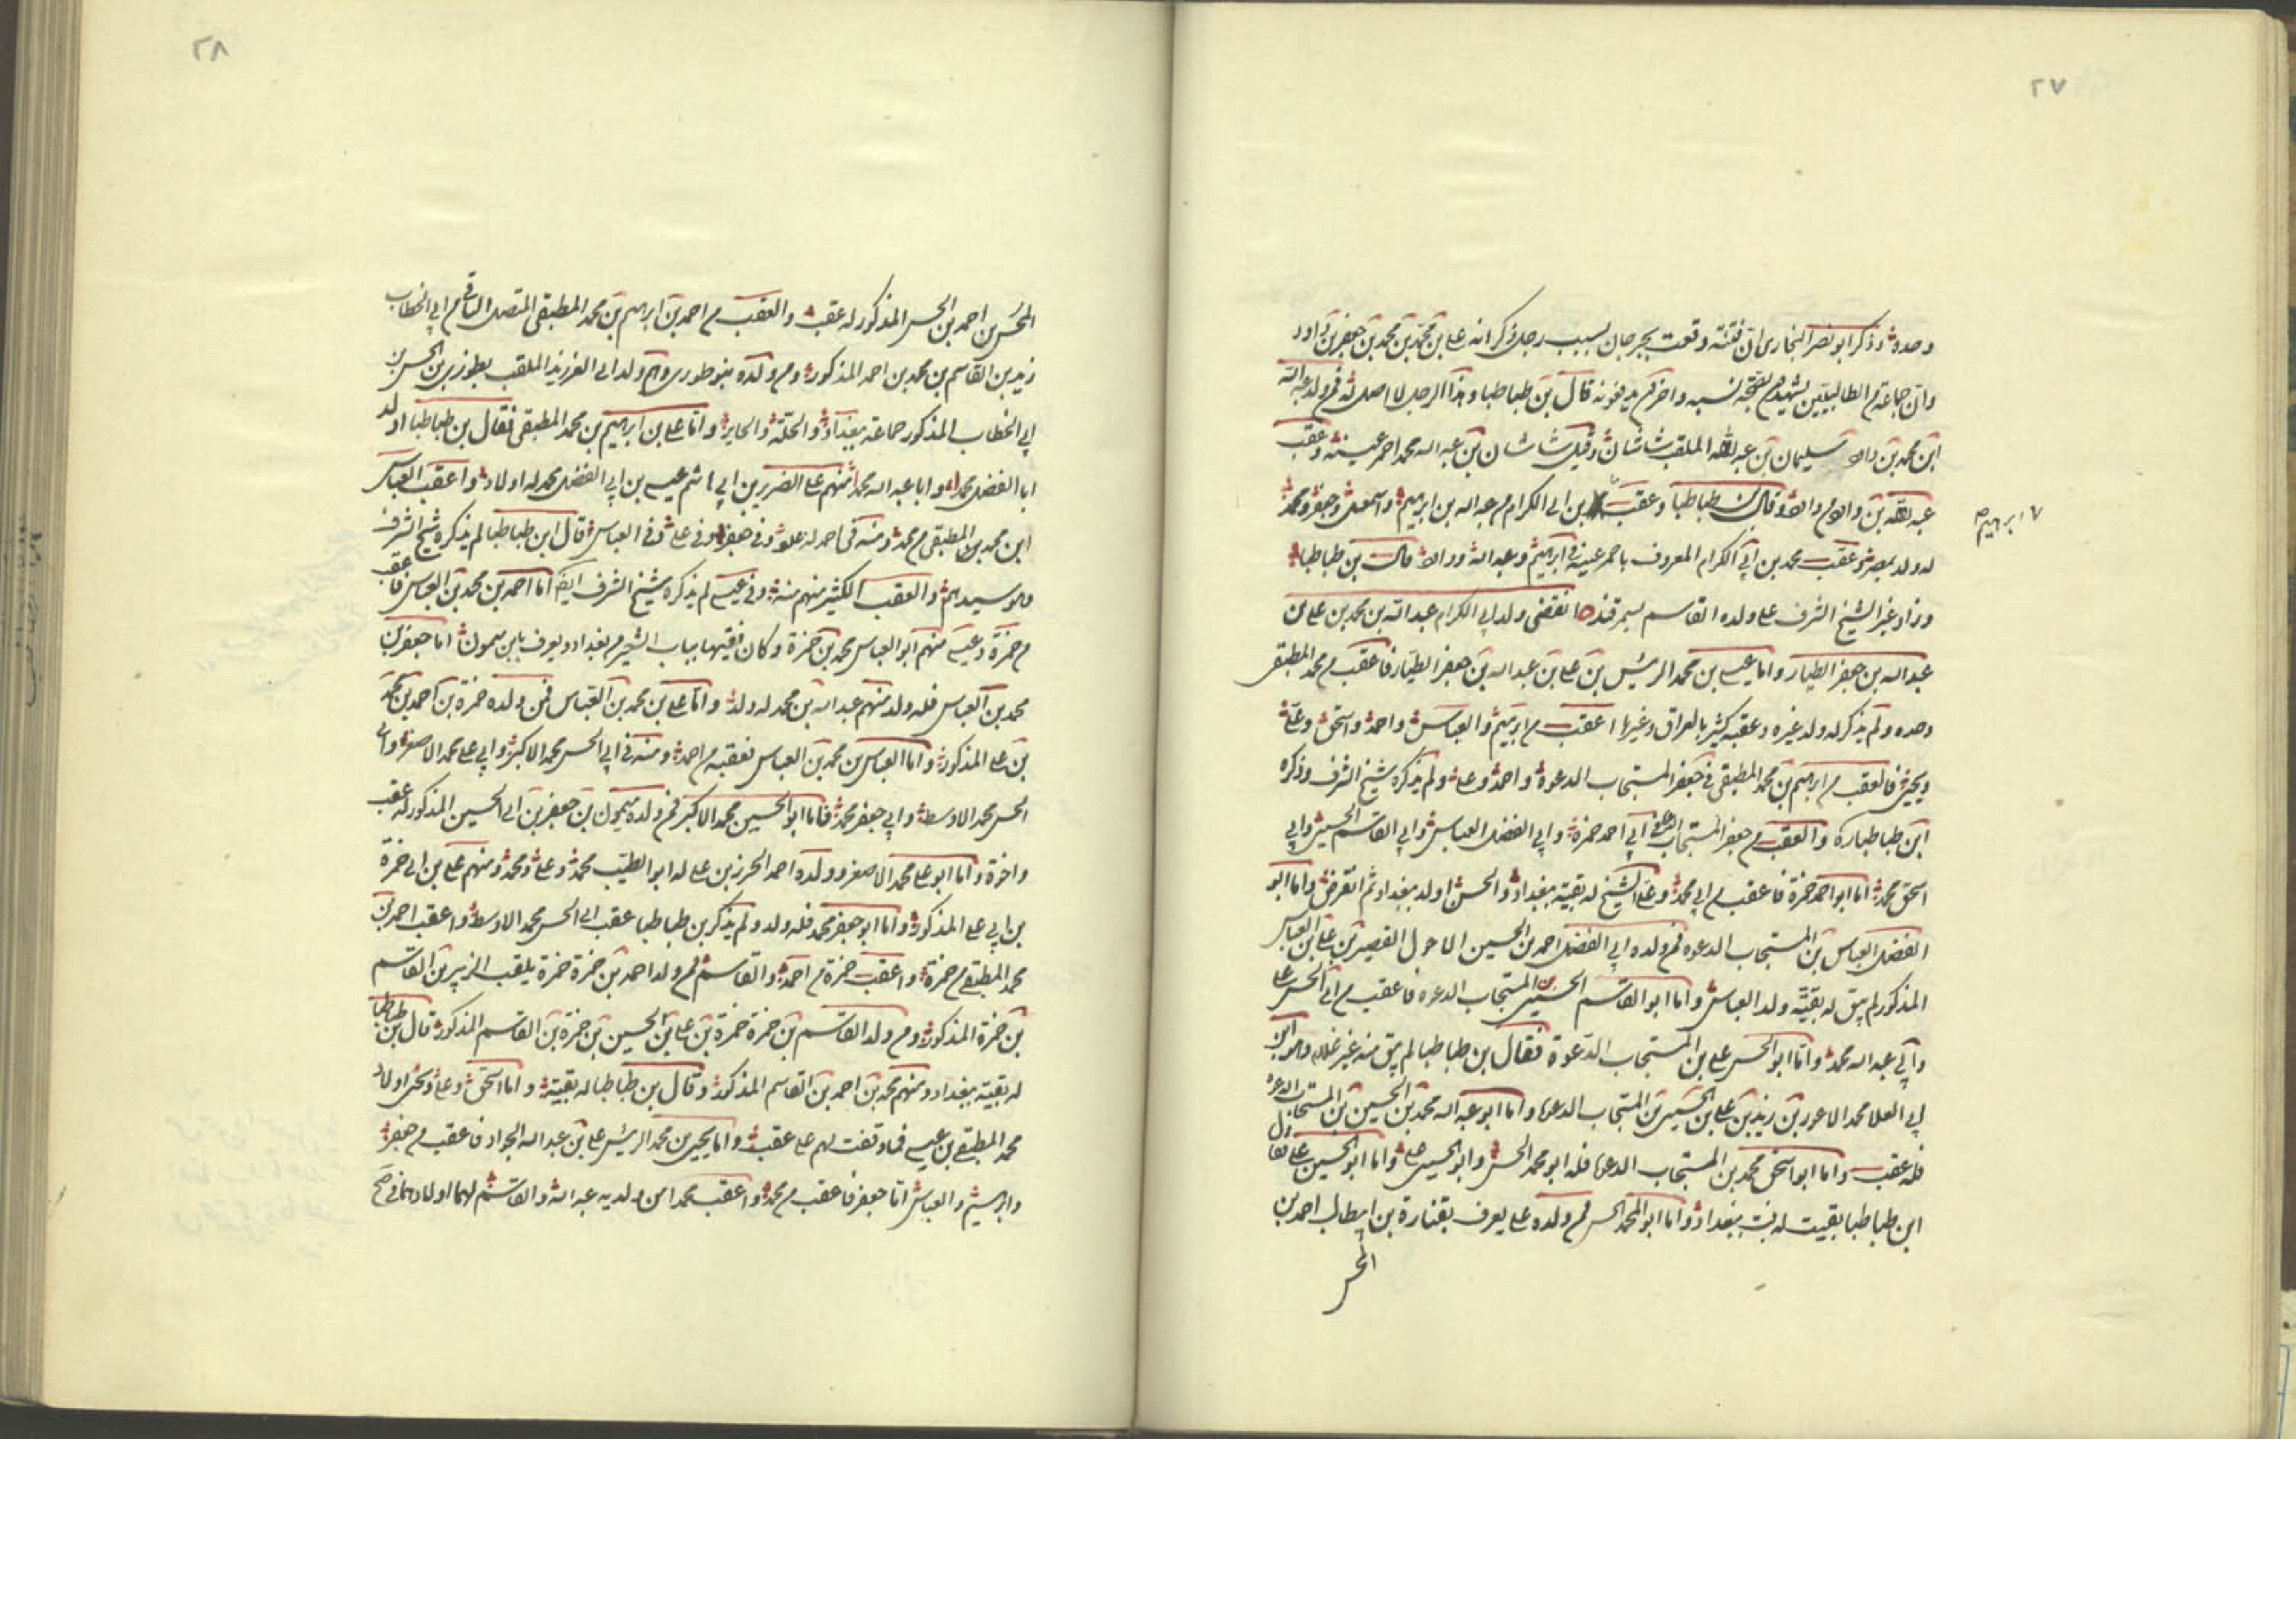 ٢٧
وحده وذكر ابو نصر البخارى ان فتنة وقعت بجرجان بسبب رجل ذكر انه على بن محمد بن محمد بن جعفر بن داود
وان جماعة من الطالبيين لصحة نسبه واخركم يدفعونه قال بن طباطبا وهذا الرجل لا اصل له فمن ولد عبد الله
ابن محمد بن داود سليمان بن عبد الله الملقب شاشان وقيل شاشان بن عبد الله محمد احمر عينه وعقب
عبد الله بن داود من داود وقال بن طباطبا وعقب بن ابى الكرام من عبد الله بن ابرهيم واسمعيل وجعفر ومحمد
٧ ابرهيم صح
له ولد بمصر وعقب محمد بن ابى الكرام المعروف باحمر عينه فى ابرهيم وعبد الله وداود قال بن طباطبا
وزاد غير الشيخ الشرف على ولده القاسم بسمرقند انقضى ولد ابى الكرام عبد الله بن محمد بن على بن
عبد الله بن جعفر الطيار واما عيسى بن محمد الرئيس بن على بن عبد الله بن جعفر الطيار فاعقب من محمد المطبقى
وحده ولم يذكر له ولد غيره وعقبه كثير بالعراق وغيرها اعقب من ابرهيم والعباس واحمد واسحق وعلى
ويحيى فالعقب من ابرهيم بن محمد المطبقى فى جعفر المستجاب الدعوة واحمد وعلى ولم يذكره شيخ الشرف وذكره
ابن طباطباره والعقب من جعفر المستجاب الدعوة ابى احمد حمزة وابى الفضل العباس وابى القاسم الحسين وابى
اسحق محمد اما ابو احمد حمزة فاعقب من ابى محمد وعلى الشيخ له بقية ببغداد والحسن اولد ببغداد ثم انقرض واما ابو
الفضل العباس بن المستجاب الدعوه فمن ولده ابى الفضل احمد بن الحسين الاحول القصير بن على بن العباس
المذكور لم يبق له بقية ولد العباس واما ابو القاسم الحسين بن المستجاب الدعوه فاعقب من ابى الحسن على
وابى عبد الله محمد واما ابو الحسن على بن المستجاب الدعوة فقال بن طباطبا لم يبق منه غير غلام وهو ابن
ابى العلا محمد الاعور بن زيد بن على بن الحسين بن المستجاب الدعوه واما ابو عبد الله محمد بن الحسين بن المستجاب الدعوه
فله عقب واما ابو اسحق محمد بن المستجاب الدعوه فله ابو محمد الحسن وابو الحسين على واما ابو الحسين على فقال
ابن طباطبا بقيت له بنت ببغداد واما ابو المحمد الحسن فمن ولده على يعرف بقنارة بن ابيطالب احمد بن
المحسن
٢٨
المحسن بن احمد بن الحسن المذكور له عقب والعقب من احمد بن ابرهيم بن محمد المطبقى المتصل الباقى من ابى الخطاب
زيد بن القاسم بن محمد بن احمد المذكور ومن ولده بنو طوزرى وهم ولد ابى الملقب بطوزرى بن الحسن بن
ابى الخطاب المذكور جماعة ببغداد والحلة والحاير واما على بن ابراهيم بن محمد المطبقى فقال بن طباطبا اولد
ابا الفضل محمدا وابا عبد الله محمدا منهم على الضرير بن ابى هاشم عيسى بن ابى الفضل محمد له اولاد واعقب العباس
ابن محمد بن المطبقى من محمد ومنه فى احمد له علوى وفى جعفر وفى على وفى العباس قال ابن طباطبا لم يذكره شيخ الشرف
وهو سيدهم والعقب الكثير منهم منه وفى عيسى لم يذكره شيخ الشرف ايضا اما احمد بن محمد بن العباس فاعقب
من حمزة وعيسى منهم ابو العباس محمد بن حمزة وكان فقيها بباب الشعير من بغداد ويعرف بابن سمون اما جعفر بن
محمد بن العباس فله ولد منهم عبد الله بن محمد له ولد واما على بن محمد بن العباس فمن ولده حمزة بن احمد بن محمد
بن على المذكور واما العباس بن محمد بن العباس فعقبه من احمد ومنه فى ابى الحسن محمد الاكبر وابى على محمد الاصغر وابى
الحسن محمد الاوسط وابى جعفر محمد فاما ابو الحسين محمد الاكبر فمن ولده ميمون بن جعفر بن ابى الحسين المذكور له عقب
واخوة واما ابو على محمد الاصغر وولده احمد الحرز بن على له ابو الطيب محمد وعلى ومحمد ومنهم على بن ابى حمزة
بن ابى على المذكور واما ابو جعفر محمد فله ولد ولم يذكر بن طباطبا عقب ابى الحسن محمد الاوسط واعقب احمد بن
محمد المطبقى من حمزة واعقب حمزة من احمد والقاسم فمن ولد احمد بن حمزة حمزة يلقب الزبير بن القاسم
بن حمزة المذكور ومن ولد القاسم بن حمزة حمزة بن على بن الحسين بن حمزة بن القاسم المذكور قال بن طباطبا
له بقية ببغداد ومنهم محمد بن احمد بن القاسم المذكور وقال بن طباطبا له بقية واما اسحق وعلى ويحيى اولاد
محمد المطبقى بن عيسى فما وقفت لهم على عقب واما يحيى بن محمد الرئيس على بن عبد الله الجواد فاعقب من جعفر
وابرهيم والعباس اما جعفر فاعقب من محمد واعقب محمد من ولديه عبد الله والقاسم لهما اولاد